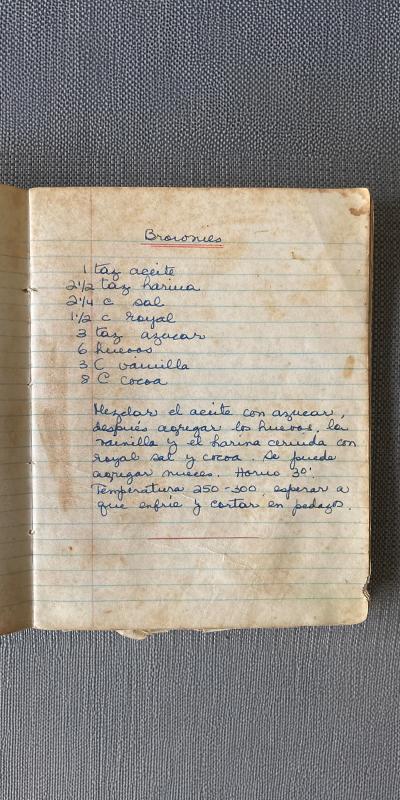 Brownies
1 taz aceite
2 1/2 taz harina
2 1/4 c sal
1 1/2 c royal
3 taz azucar
6 huevos
3 C vainilla
8 C cocoa
Mezclar el aceite con azucar,
después agregar los huevos, la
vainilla y el harina cernida con
royal sal y cocoa. Se puede
agregar nueces. Horno 30'.
Temperatura 250-300 esperar a
que enfríe y cortar en pedazos.